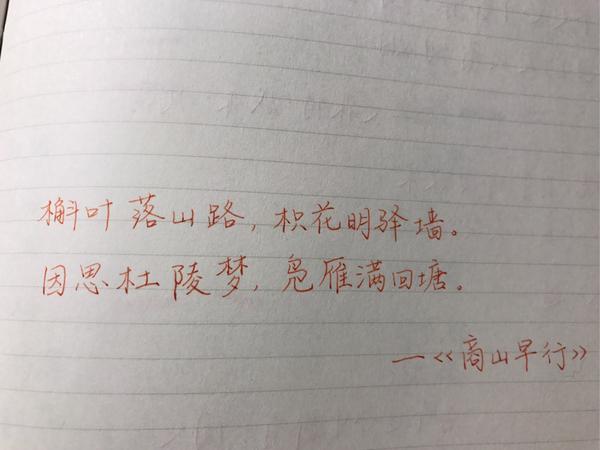 槲叶落山路，枳花明驿墙。
因思杜陵梦，凫雁满回塘。
—《商山早行》